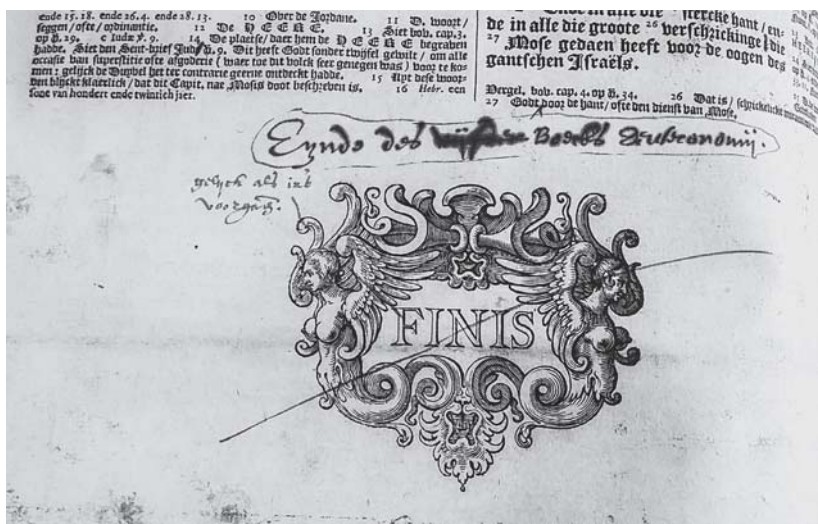 ende 15.18. ende 26.4. ende 28.13. 10 Over de Jordane. 11 D. woort/
seggen/ofte/ordinantie. 12 De HEERE. 13 Siet bov. cap.3.
op v.29. c Judæ v. 9. 14 De plaetse/daer hem de HEERE begraven
hadde. Siet den Sent-brief Judæ v.9. Dit heeft Godt sonder twijfel gewilt/om alle
occasie van superstitie ofte afgoderie (waer toe dit volck seer genegen was) voor te ko-
men: gelijck de Duyvel het ter contrarie geerne ontdeckt hadde. 15 Uyt dese woor-
den blijckt klaerlick/dat dit Capit. nae Mosis doot beschreven is. 16 Hebr. een
sone van hondert ende twintich jaer.
stercke hant/en-
de in alle die groote 26 verschrickinge/die
27 Mose gedaen heeft voor de oogen des
gantschen Israëls.
Vergel. bov. cap. 4. op v. 34. 26 Dat is/schrickelicke
27 Godt door de hant/ofte den dienst van Mose.
Eynde des Boecks Deuteronomij.
gelijck als int
voorgaē.
FINIS